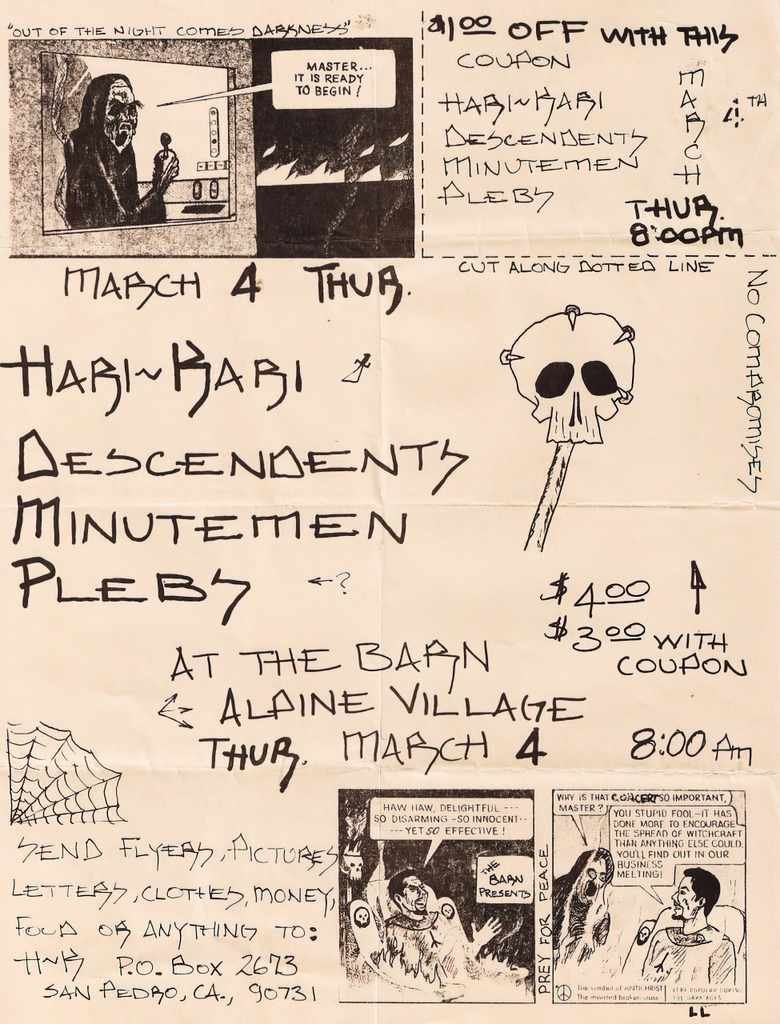 "OUT OF THE NIGHT COMES DARKNESS"
MASTER...
IT IS READY
TO BEGIN!
$1.00 OFF WITH THIS
COUPON
HARI~KARI
DESCENDENTS
MINUTEMEN
PLEBS
MARCH
4TH
THUR.
8:00PM
CUT ALONG DOTTED LINE
NO COMPROMISES
MARCH 4 THUR.
HARI~KARI
DESCENDENTS
MINUTEMEN
PLEBS ←?
$4.00
$3.00 WITH
COUPON
AT THE BARN
ALPINE VILLAGE
THUR. MARCH 4 8:00 Am
SEND FLYERS, PICTURES
LETTERS, CLOTHES, MONEY,
FOOD OR ANYTHING TO:
H~K P.O. BOX 2673
SAN PEDRO, CA., 90731
HAW HAW, DELIGHTFUL ---
SO DISARMING - SO INNOCENT--
--- YET SO EFFECTIVE!
THE
BARN
PRESENTS
PREY FOR PEACE
WHY IS THAT CONCERT SO IMPORTANT,
MASTER?
YOU STUPID FOOL - IT HAS
DONE MORE TO ENCOURAGE
THE SPREAD OF WITCHCRAFT
THAN ANYTHING ELSE COULD.
YOU'LL FIND OUT IN OUR
BUSINESS
MELTING!
The symbol of ANTICHRIST
The inverted broken cross
LL